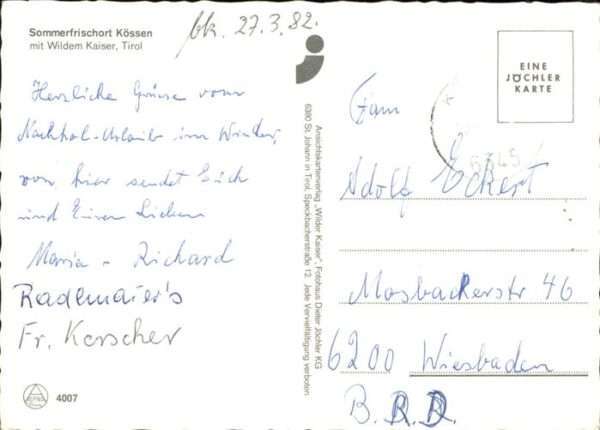 Sommerfrischort Kössen
mit Wildem Kaiser, Tirol
bk. 27.3.82.
Herzliche Grüsse vom
Nachhol-Urlaub im Winter,
von hier sendet Euch
und Euren Lieben
Maria - Richard
Rademaier's
Fr. Kerscher
4007
Ansichtskartenverlag „Wilder Kaiser", Fotohaus Dieter Jöchler KG
6380 St. Johann in Tirol, Speckbacherstraße 12. Jede Vervielfältigung verboten
EINE
JÖCHLER
KARTE
Fam
Adolf Eckert
Mosbackerstr 46
6200 Wiesbaden
B.R.D.